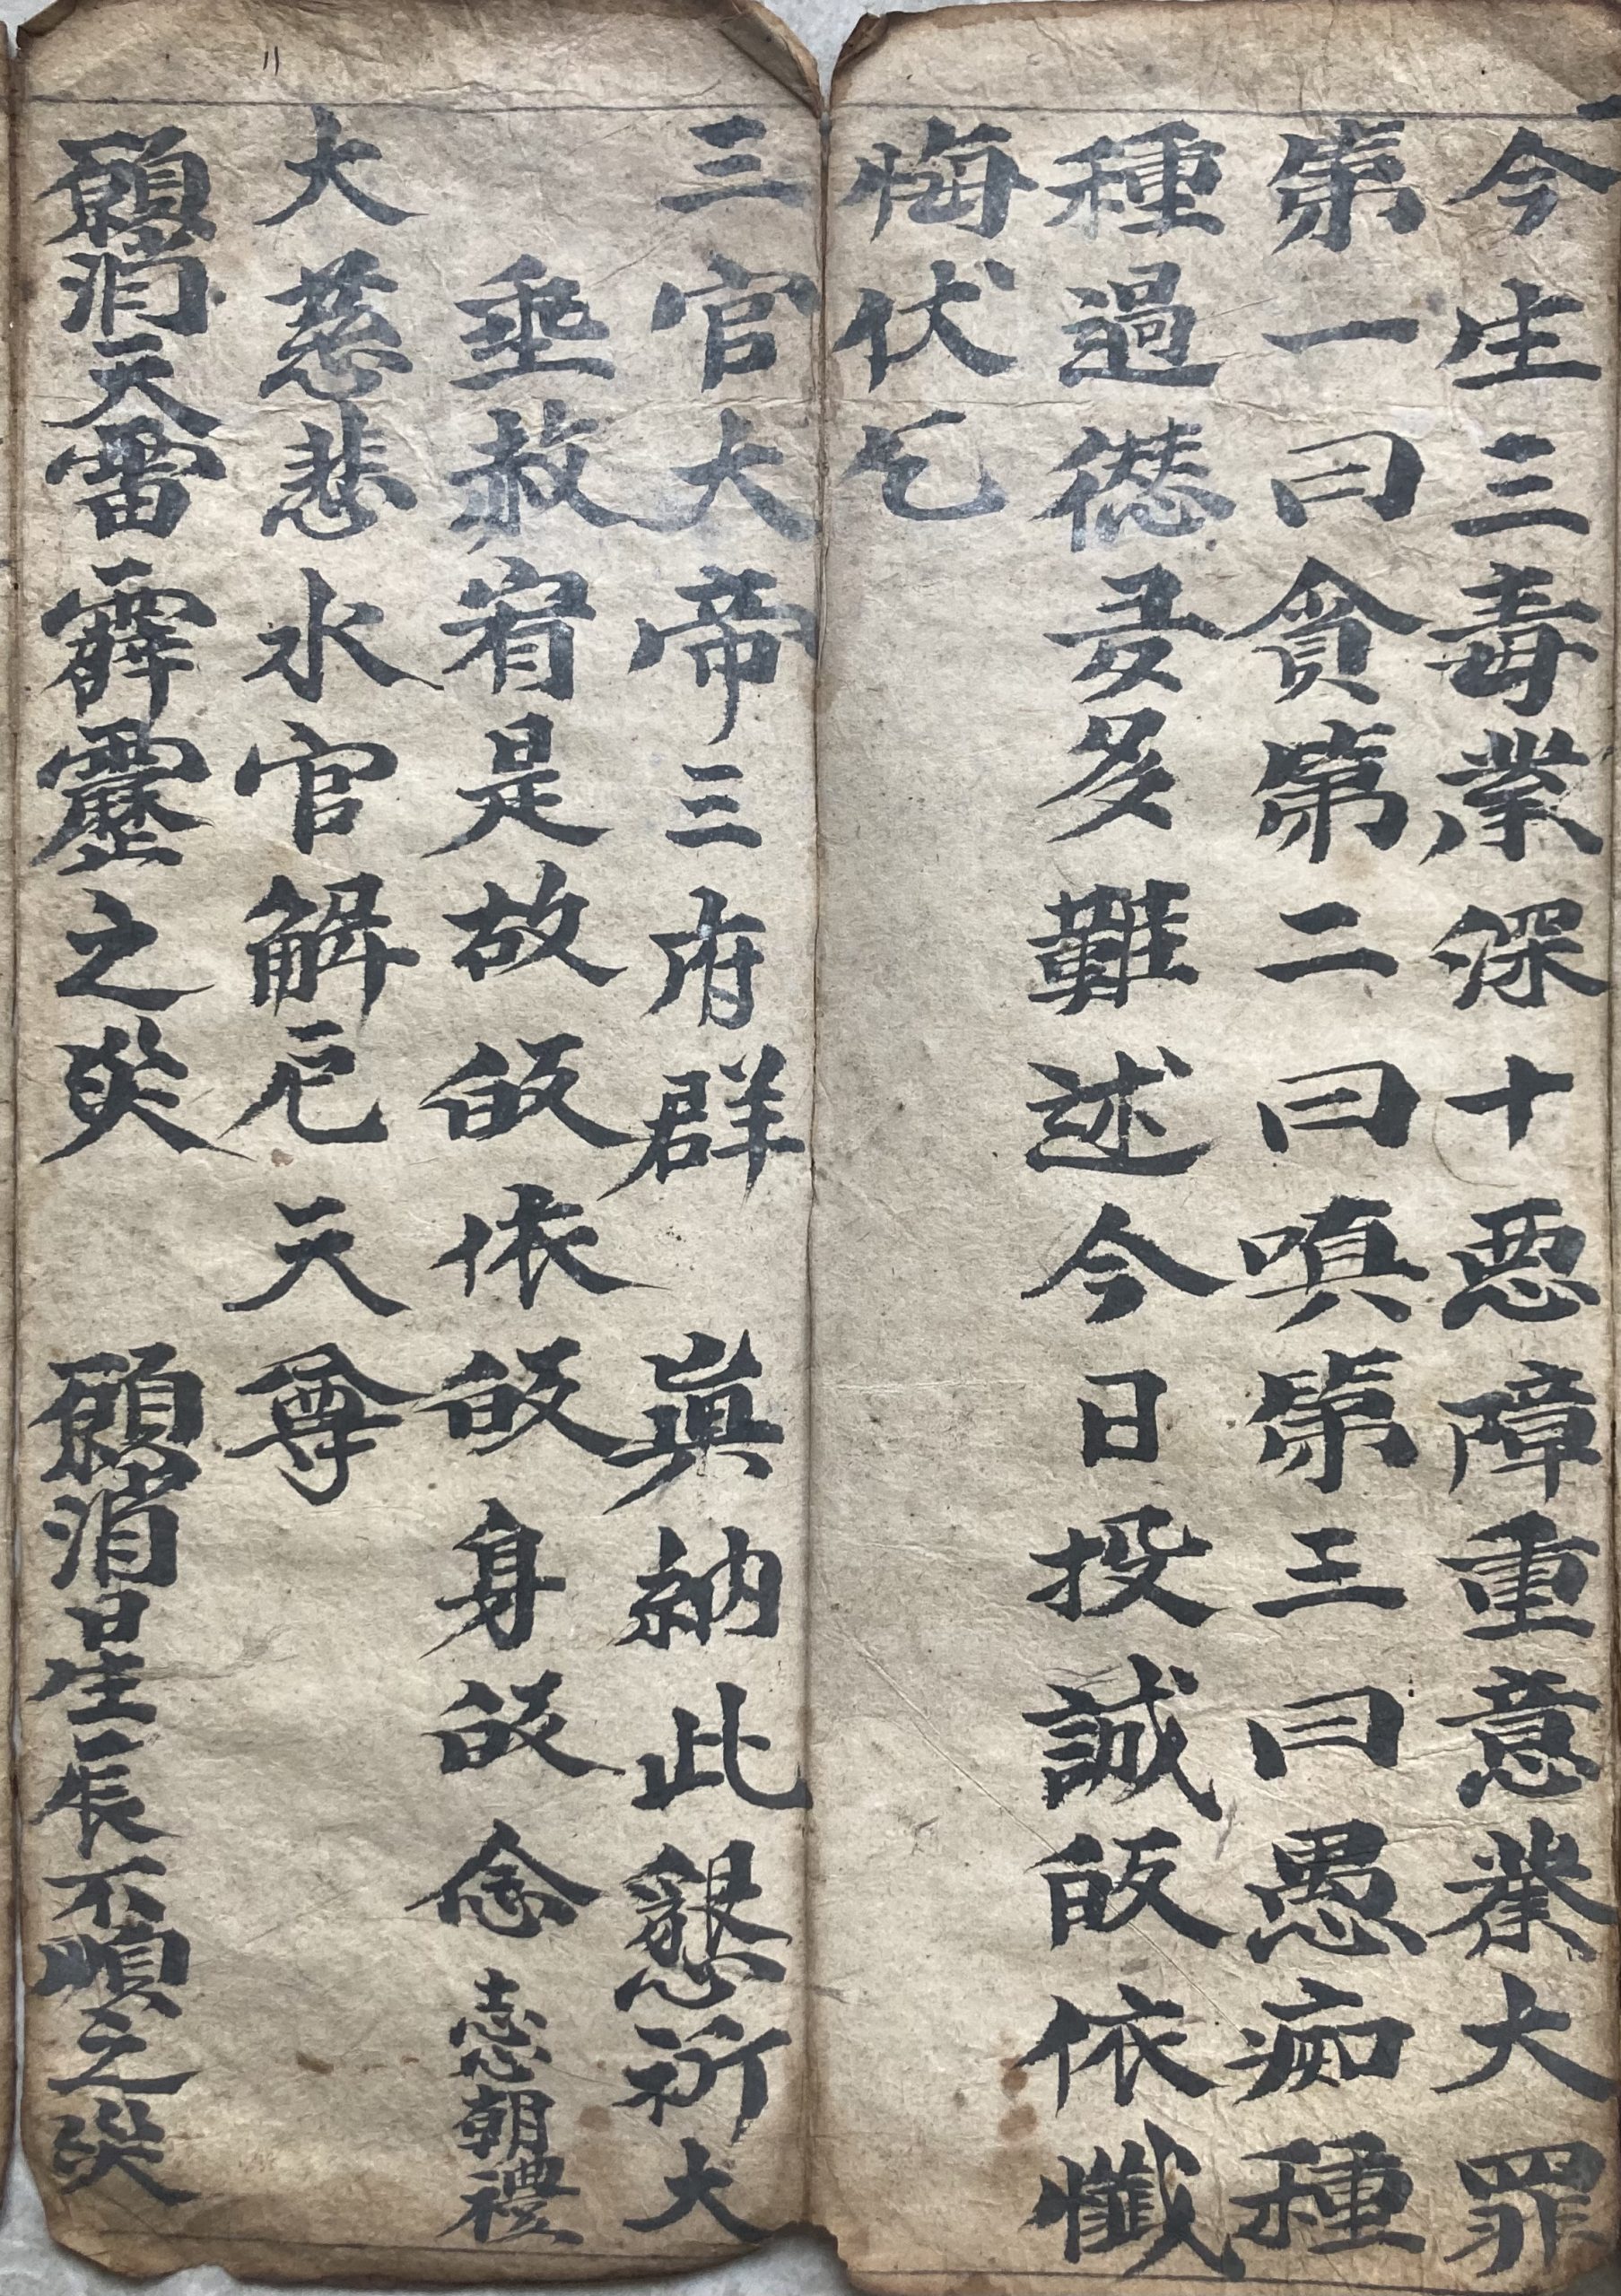 今生三毒業深十惡障重意業大罪
第一曰貪第二曰嗔第三曰愚痴種
種過愆多多難述今日投誠皈依懺
悔伏乞
三官大帝三府群 眞納此懇祈大
垂赦宥是故皈依皈身皈念 志心朝禮
大慈悲水官解厄天尊
願消天雷霹靂之災 願消日生月長不順之災